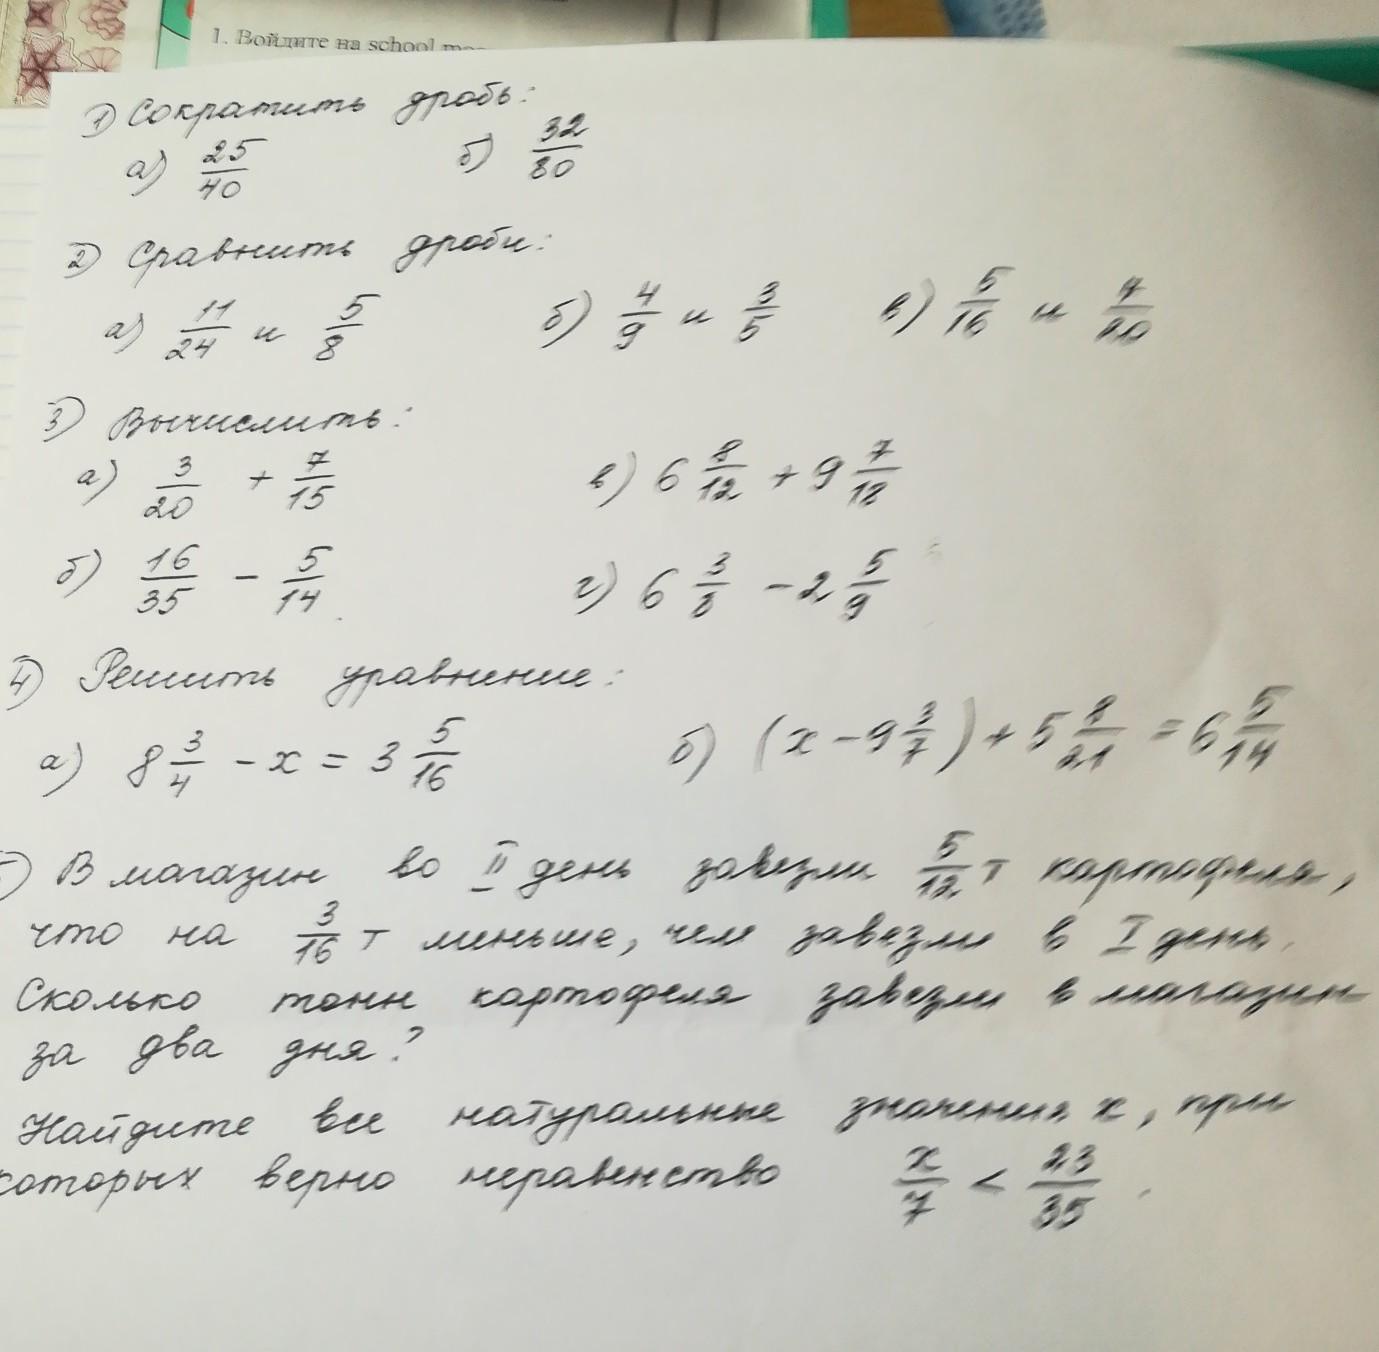 1. Войдите на school.mos
1) Сократить дробь:
а) 25/40 б) 32/80
2) Сравнить дроби:
а) 11/24 и 5/8 б) 4/9 и 3/5 в) 5/16 и 7/20
3) Вычислить:
а) 3/20 + 7/15 в) 6 8/12 + 9 7/18
б) 16/35 - 5/14 г) 6 3/8 - 2 5/9
4) Решить уравнение:
а) 8 3/4 - x = 3 5/16 б) (x - 9 3/7) + 5 8/21 = 6 5/14
5) В магазин во II день завезли 5/12 т картофеля,
что на 3/16 т меньше, чем завезли в I день.
Сколько тонн картофеля завезли в магазин
за два дня?
Найдите все натуральные значения x, при
которых верно неравенство x/7 < 23/35.